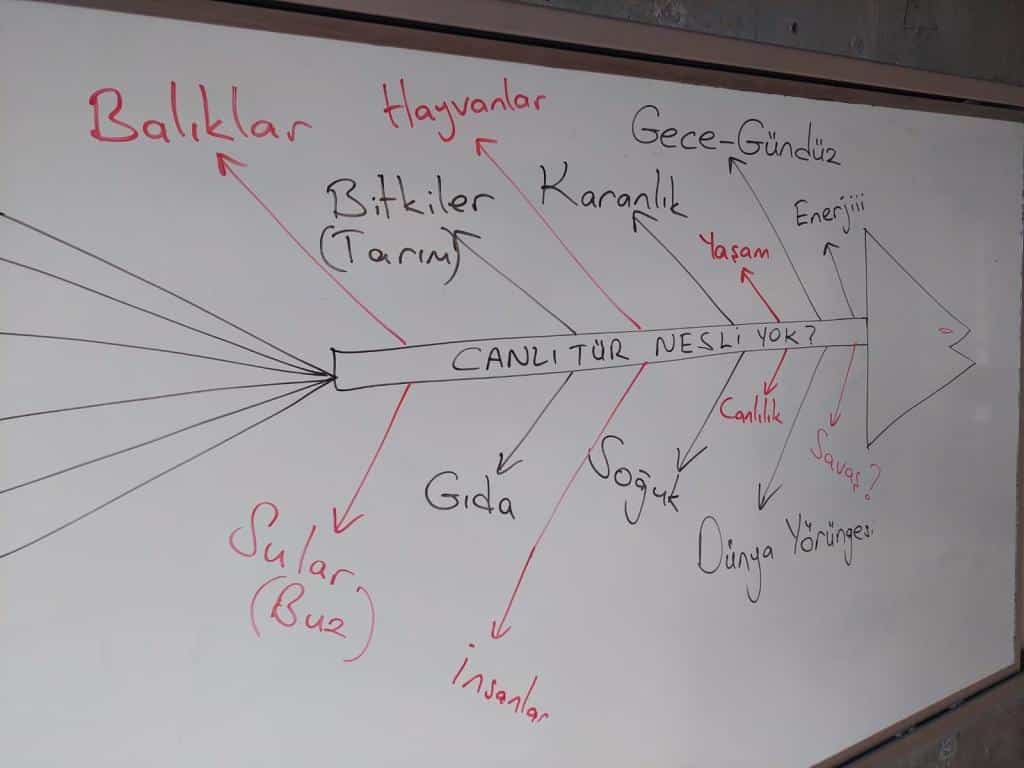 Balıklar
Hayvanlar
Gece-Gündüz
Bitkiler
(Tarım)
Karanlık
Enerjiii
Yaşam
CANLI TÜR NESLİ YOK?
Canlılık
Gıda
Soğuk
Savaş?
Sular
(Buz)
Dünya Yörüngesi
İnsanlar